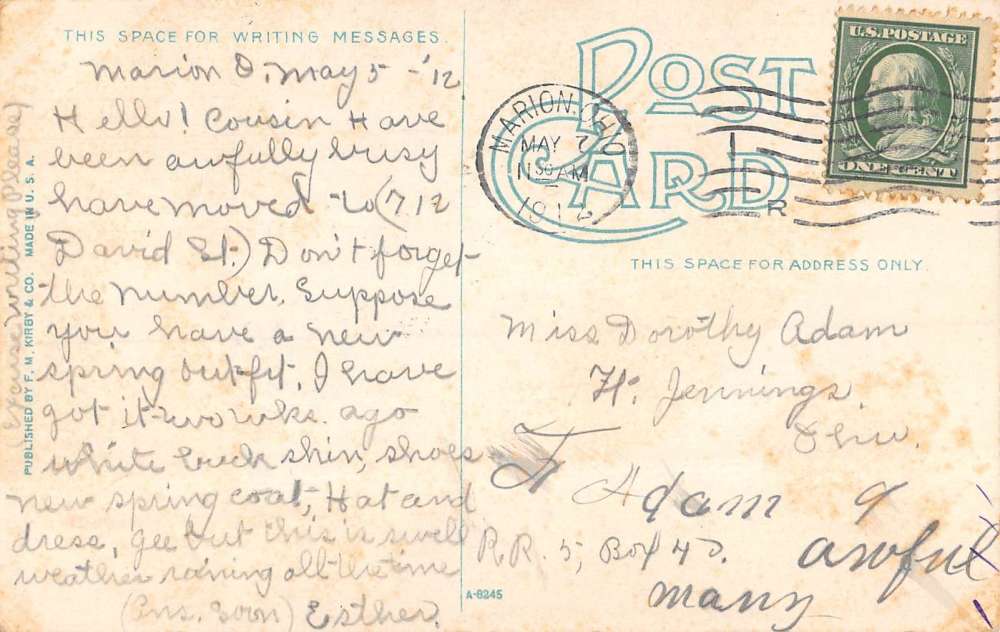 THIS SPACE FOR WRITING MESSAGES.
Marion O. May 5 - '12
Hello! Cousin Have
been awfully busy
have moved to (712
David St.) Don't forget
the number. Suppose
you have a new
spring outfit. I have
got it two wks. ago
white buck skin, shoes
new spring coat, Hat and
dress, gee but this is swell
weather raining all the time
(Ans. Soon) Esther.
(Excuse writing Please)
PUBLISHED BY F. M. KIRBY & CO. MADE IN U. S. A.
POST CARD
MARION, OHIO
MAY 7
1912
U.S. POSTAGE
ONE CENT
R
THIS SPACE FOR ADDRESS ONLY.
Miss Dorothy Adam
Ft. Jennings,
Ohio.
Adam
R.R. 5, Box 40.
awful
many
A-8245